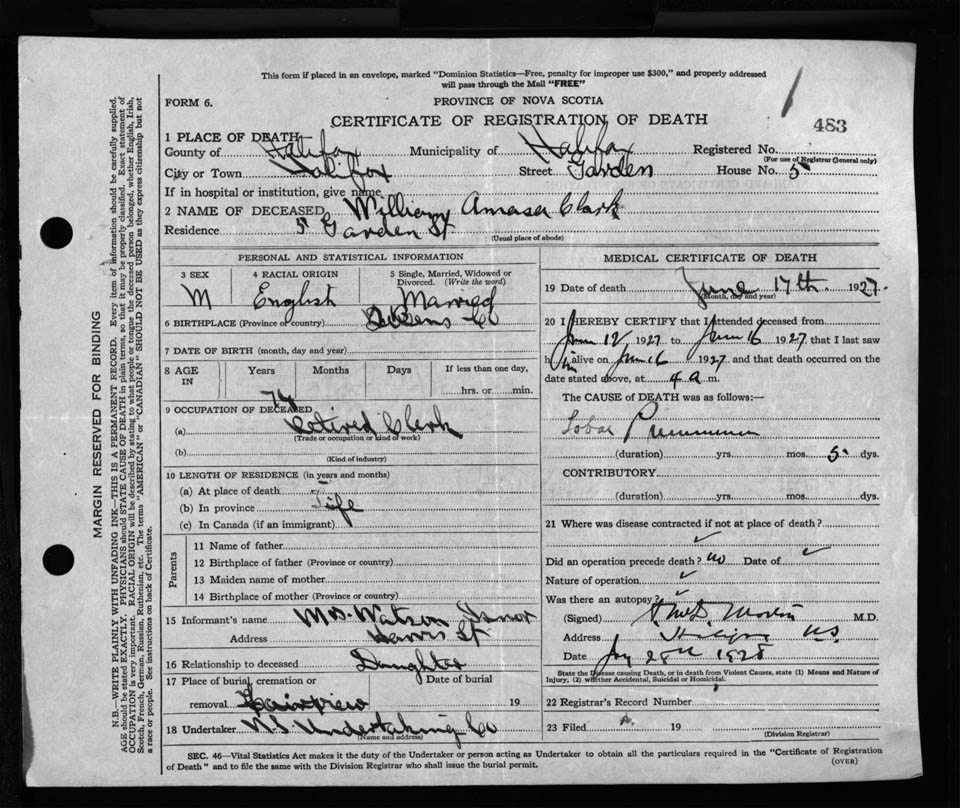 This form if placed in an envelope, marked "Dominion Statistics—Free, penalty for improper use $300," and properly addressed
will pass through the Mail "FREE"
FORM 6.
PROVINCE OF NOVA SCOTIA
CERTIFICATE OF REGISTRATION OF DEATH
483
1 PLACE OF DEATH
County of Halifax Municipality of Halifax Registered No.
(For use of Registrar General only)
City or Town Halifax Street Garden House No. 5
If in hospital or institution, give name
2 NAME OF DECEASED William Amasa Clark
Residence 5 Garden St
(Usual place of abode)
PERSONAL AND STATISTICAL INFORMATION
3 SEX 4 RACIAL ORIGIN 5 Single, Married, Widowed or
Divorced. (Write the word)
M English Married
6 BIRTHPLACE (Province or country) Queens Co
7 DATE OF BIRTH (month, day and year)
8 AGE IN Years Months Days If less than one day,
hrs. or min.
9 OCCUPATION OF DECEASED
(a) Retired Clerk
(Trade or occupation or kind of work)
(b)
(Kind of industry)
10 LENGTH OF RESIDENCE (in years and months)
(a) At place of death
(b) In province Life
(c) In Canada (if an immigrant)
Parents
11 Name of father
12 Birthplace of father (Province or country)
13 Maiden name of mother
14 Birthplace of mother (Province or country)
15 Informant's name Mrs. Watson
Address St
16 Relationship to deceased Daughter
17 Place of burial, cremation or Date of burial
removal Fairview 19
18 Undertaker N S Undertaking Co
(Name and address)
MEDICAL CERTIFICATE OF DEATH
19 Date of death June 17th. 1927.
(Month, day and year)
20 I HEREBY CERTIFY that I attended deceased from
June 12, 1927 to June 16 1927 that I last saw
him alive on June 16 1927 and that death occurred on the
date stated above, at 4 a m.
The CAUSE of DEATH was as follows:—
Lobar Pneumonia
(duration) yrs. mos. 5 dys.
CONTRIBUTORY
(duration) yrs. mos. dys.
21 Where was disease contracted if not at place of death?
✓
Did an operation precede death? no Date of ✓
Nature of operation ✓
Was there an autopsy? ✓
(Signed) M.D.
Address Halifax NS
Date 28th 1928
State the Disease causing Death, or in death from Violent Causes, state (1) Means and Nature of
Injury, (2) whether Accidental, Suicidal or Homicidal.
22 Registrar's Record Number
23 Filed 19
(Division Registrar)
SEC. 46—Vital Statistics Act makes it the duty of the Undertaker or person acting as Undertaker to obtain all the particulars required in the "Certificate of Registration
of Death" and to file the same with the Division Registrar who shall issue the burial permit.
(OVER)
MARGIN RESERVED FOR BINDING
N.B.—WRITE PLAINLY WITH UNFADING INK—THIS IS A PERMANENT RECORD. Every item of information should be carefully supplied.
AGE should be stated EXACTLY. PHYSICIANS should STATE CAUSE OF DEATH in plain terms, so that it may be properly classified. Exact statement of
OCCUPATION is very important. RACIAL ORIGIN will be described by stating to what people or tongue the deceased person belonged, whether English, Irish,
Scotch, French, German, Russian, Ruthenian, etc. The terms "AMERICAN" or "CANADIAN" SHOULD NOT BE USED as they express citizenship but not
a race or people. See instructions on back of Certificate.